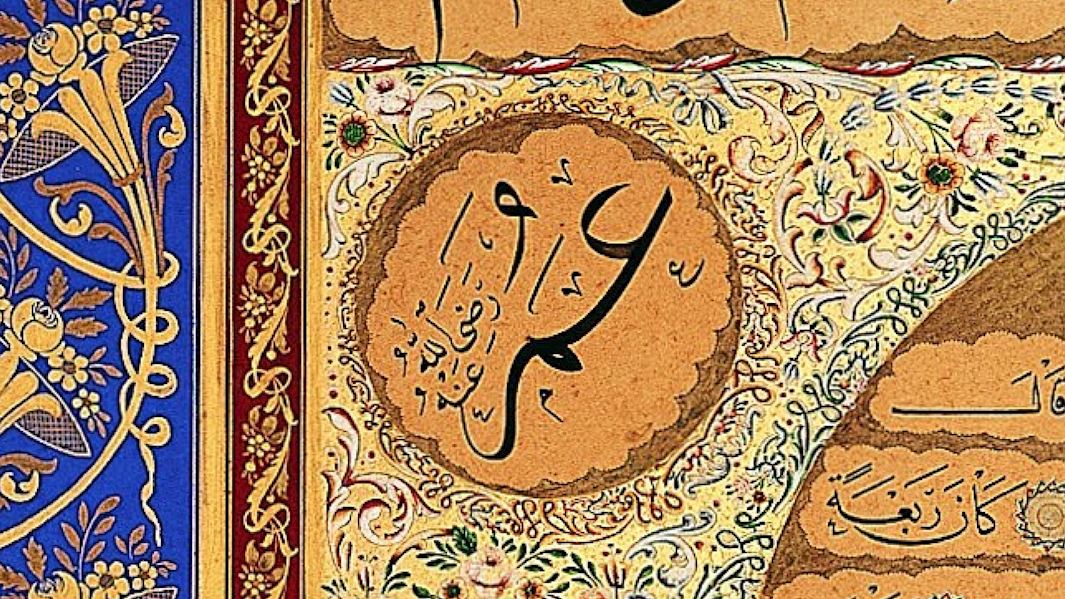 عمر
رضى الله
عنه
قال
كَانَ رَبْعَةً